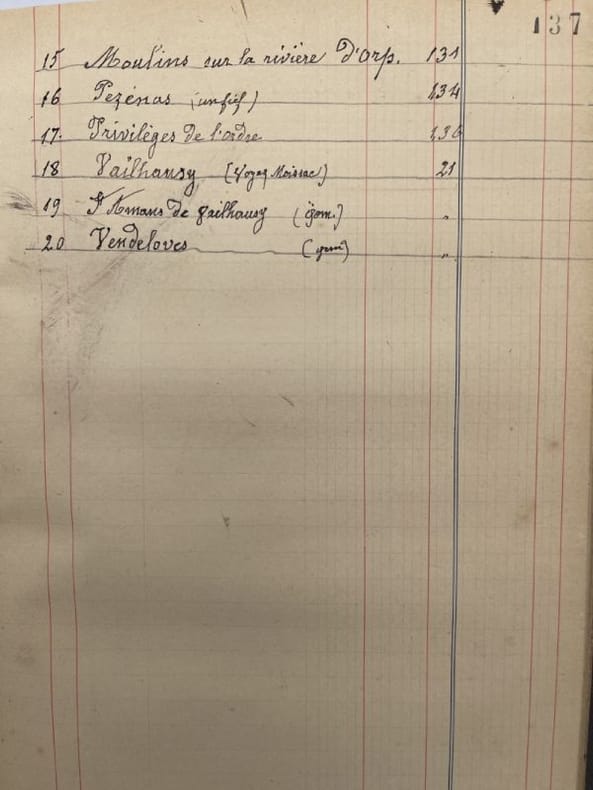 137
15 Moulins sur la rivière d'Orp. 131
16 Pezénas (un fief) 134
17. Privilèges de l'ordre 136
18 Vailhausy (Voyez Moissac) 21
19 St Amans de Vailhausy "
20 Vendeloves "